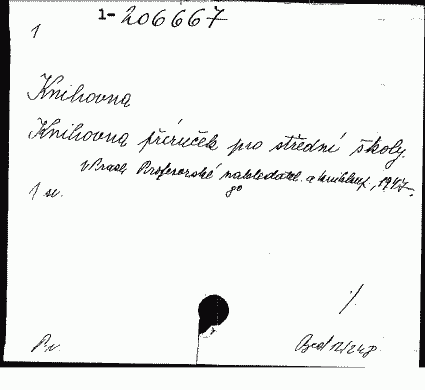 1-206667
1
Knihovna
Knihovna příruček pro střední školy.
v Praze, Profesorské nakladatel. a knihkup., 1947.
8°
1 sv.
%
P.v.